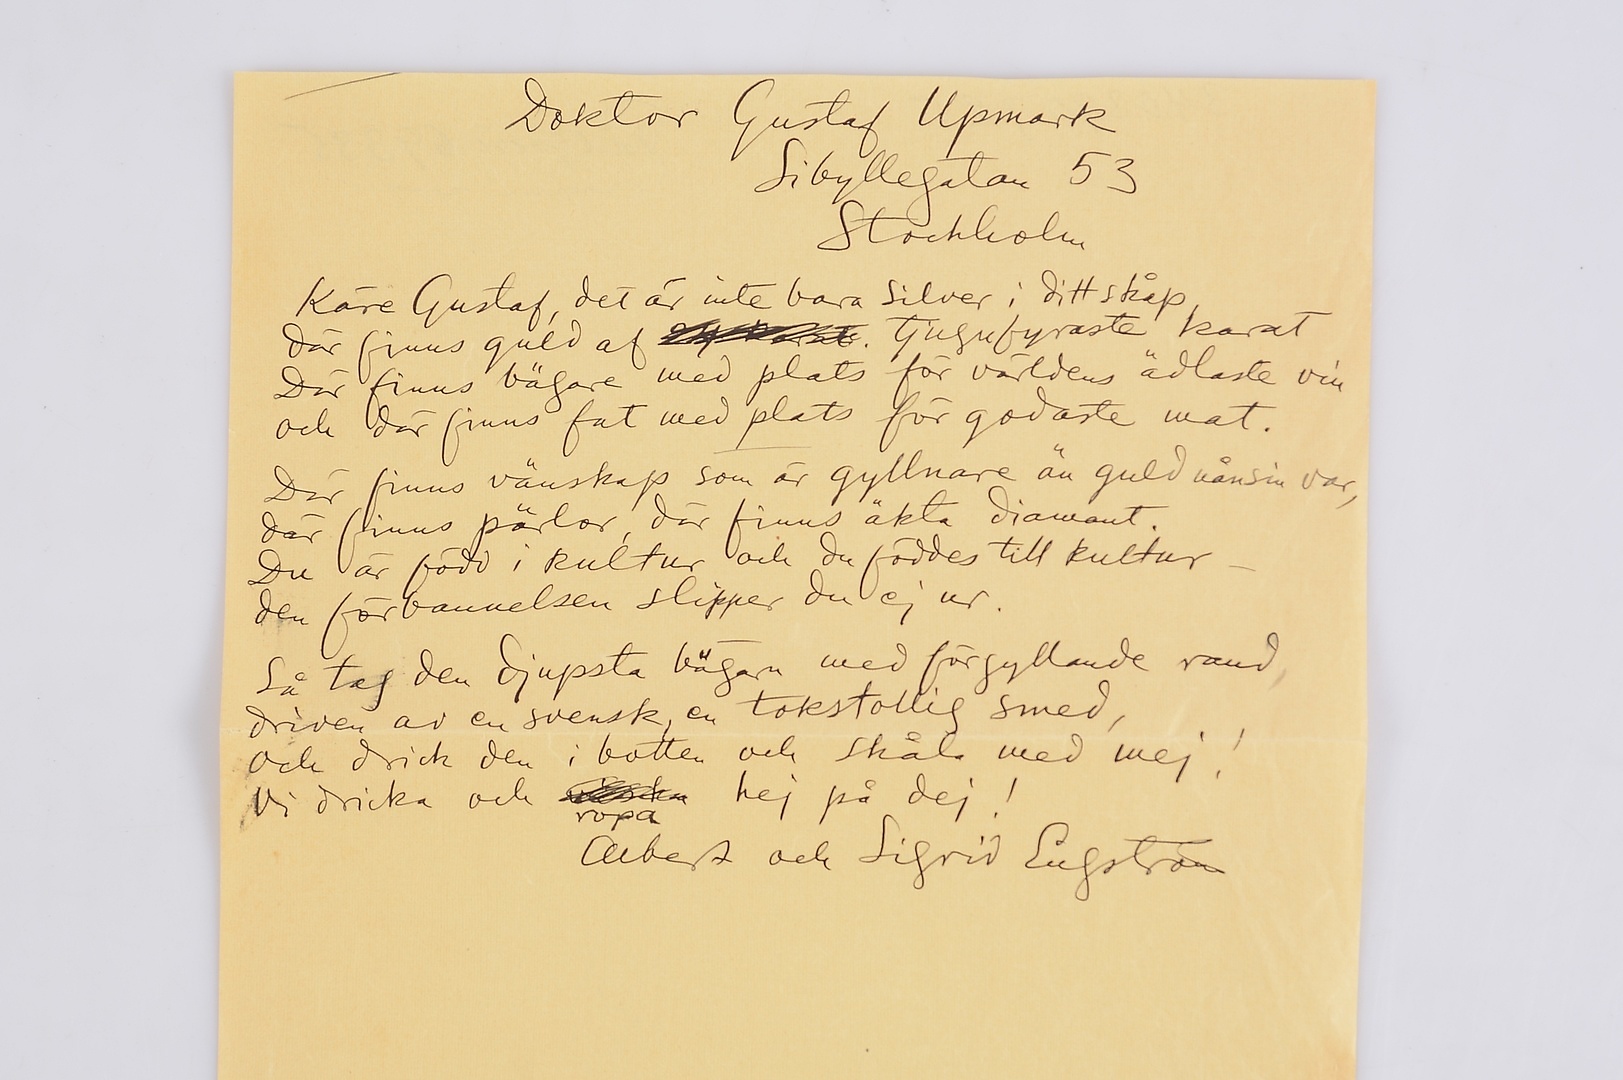 Doktor Gustaf Upmark
Sibyllegatan 53
Stockholm
Käre Gustaf, det är inte bara silver i ditt skåp,
där finns guld af tjugufyraste karat
Där finns bägare med plats för världens ädlaste vin
och där finns fat med plats för godaste mat.
Där finns vänskap som är gyllnare än guld nånsin var,
där finns pärlor, där finns äkta diamant.
Du är född i kultur och du föddes till kultur –
den förbannelsen slipper du ej ur.
Så tag den djupsta bägarn med förgyllande rand,
driven av en svensk, en tokstollig smed,
och drick den i botten och skåla med mej!
Vi dricka och hej på dej!
ropa
Albert och Sigrid Engström